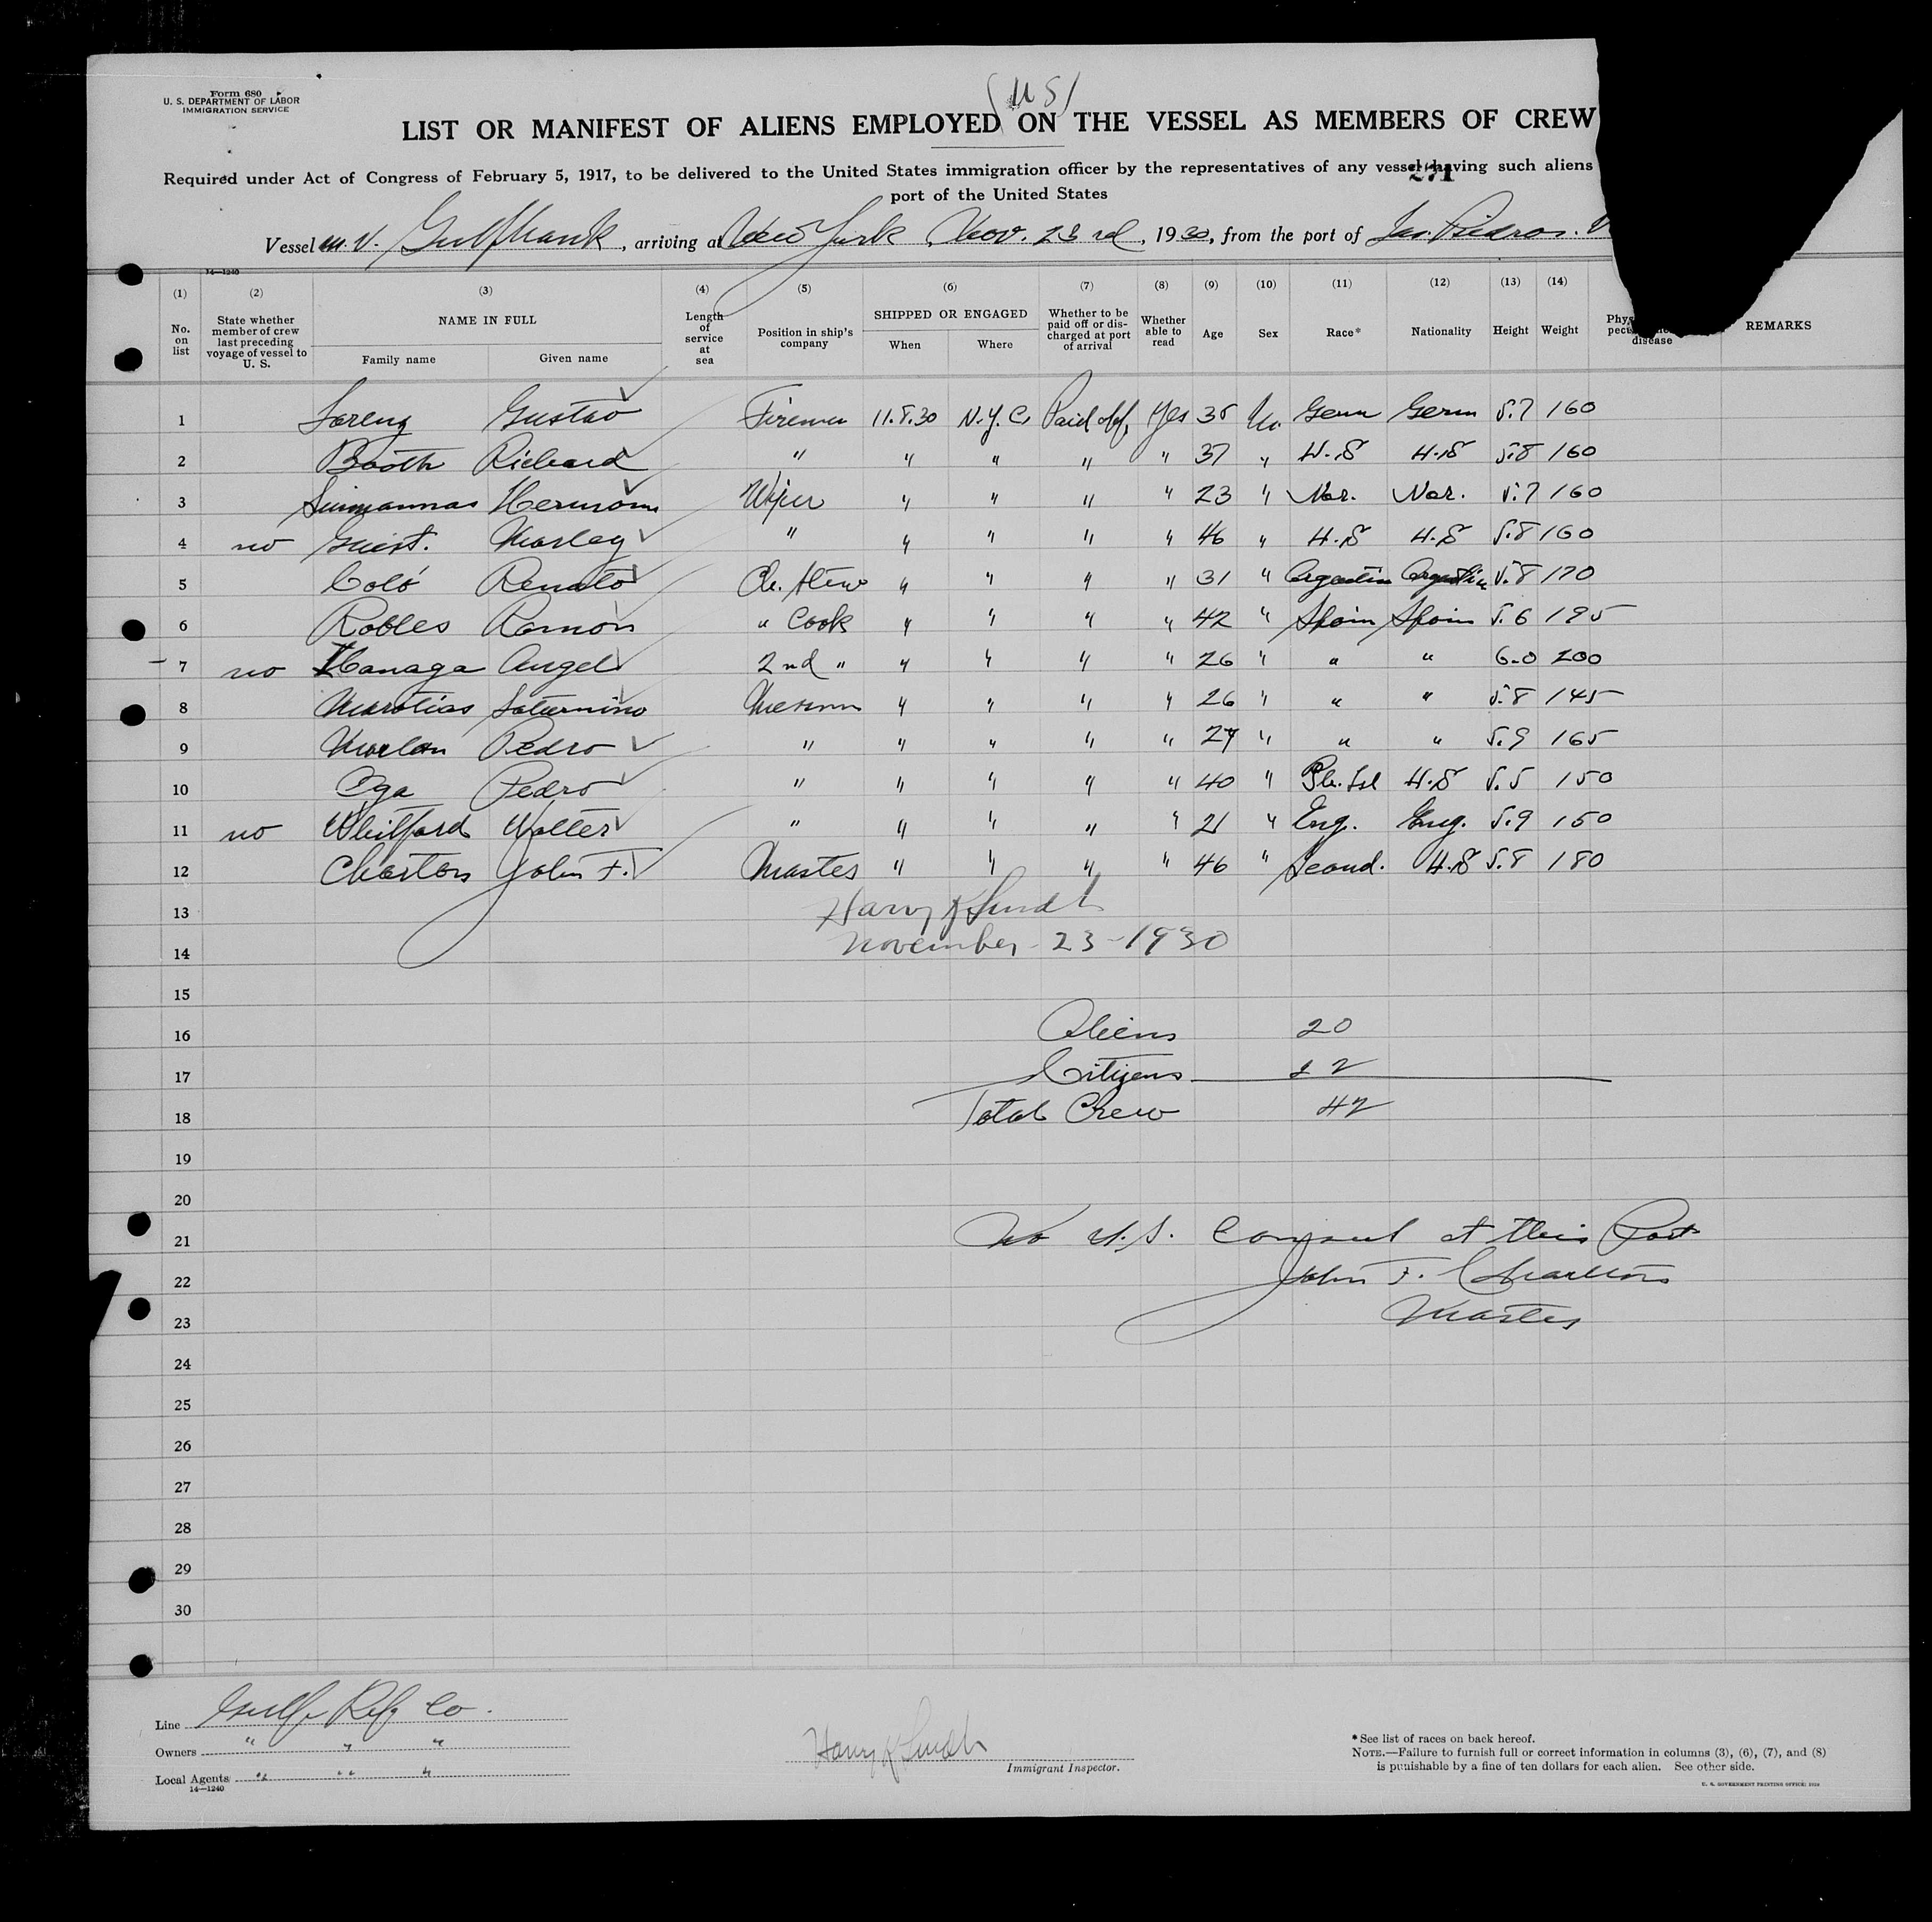 Form 680
U. S. DEPARTMENT OF LABOR
IMMIGRATION SERVICE
(US)
LIST OR MANIFEST OF ALIENS EMPLOYED ON THE VESSEL AS MEMBERS OF CREW
Required under Act of Congress of February 5, 1917, to be delivered to the United States immigration officer by the representatives of any vessel having such aliens
port of the United States
Vessel M.V. Gulfhawk, arriving at New York Nov. 23rd, 1930, from the port of Las Piedras. V
14—1240
(1) (2) (3) (4) (5) (6) (7) (8) (9) (10) (11) (12) (13) (14)
No. on list State whether member of crew last preceding voyage of vessel to U. S. NAME IN FULL Family name Given name Length of service at sea Position in ship's company SHIPPED OR ENGAGED When Where Whether to be paid off or discharged at port of arrival Whether able to read Age Sex Race* Nationality Height Weight disease REMARKS
1 Lorenz Gustav Fireman 11.8.30 N.Y.C. Paid off, Yes 35 M. Germ Germ 5.7 160
2 Booth Richard " " " " " 37 " U.S U.S 5.8 160
3 Hermann Wiper " " " " 23 " Nor. Nor. 5.7 160
4 no Guist. Morley " " " " " 46 " U.S U.S 5.8 160
5 Coló Renato Ch. Stew " " " " 31 " Argentin Argentin 5.8 170
6 Robles Ramon " Cook " " " " 42 " Spain Spain 5.6 195
7 no Angel 2nd " " " " " 26 " " " 6-0 200
8 Saturnino Messmn " " " " 26 " " " 5.8 145
9 Pedro " " " " " 27 " " " 5.9 165
10 Pedro " " " " " 40 " Ph. Isl U.S 5.5 150
11 no Whitford Walter " " " " " 21 " Eng. Eng. 5.9 150
12 Charlton John F. Master " " " " 46 " Scand. U.S 5.8 180
13 Harry K
14 November-23-1930
15
16 Aliens 20
17 Citizens 22
18 Total Crew 42
19
20
21 No U.S. Consul at this Port
22 John F. Charlton
23 Master
24
25
26
27
28
29
30
Line Gulf Ref Co.
Owners " " "
Local Agents " " "
14—1240
Harry K
Immigrant Inspector.
*See list of races on back hereof.
NOTE.—Failure to furnish full or correct information in columns (3), (6), (7), and (8)
is punishable by a fine of ten dollars for each alien. See other side.